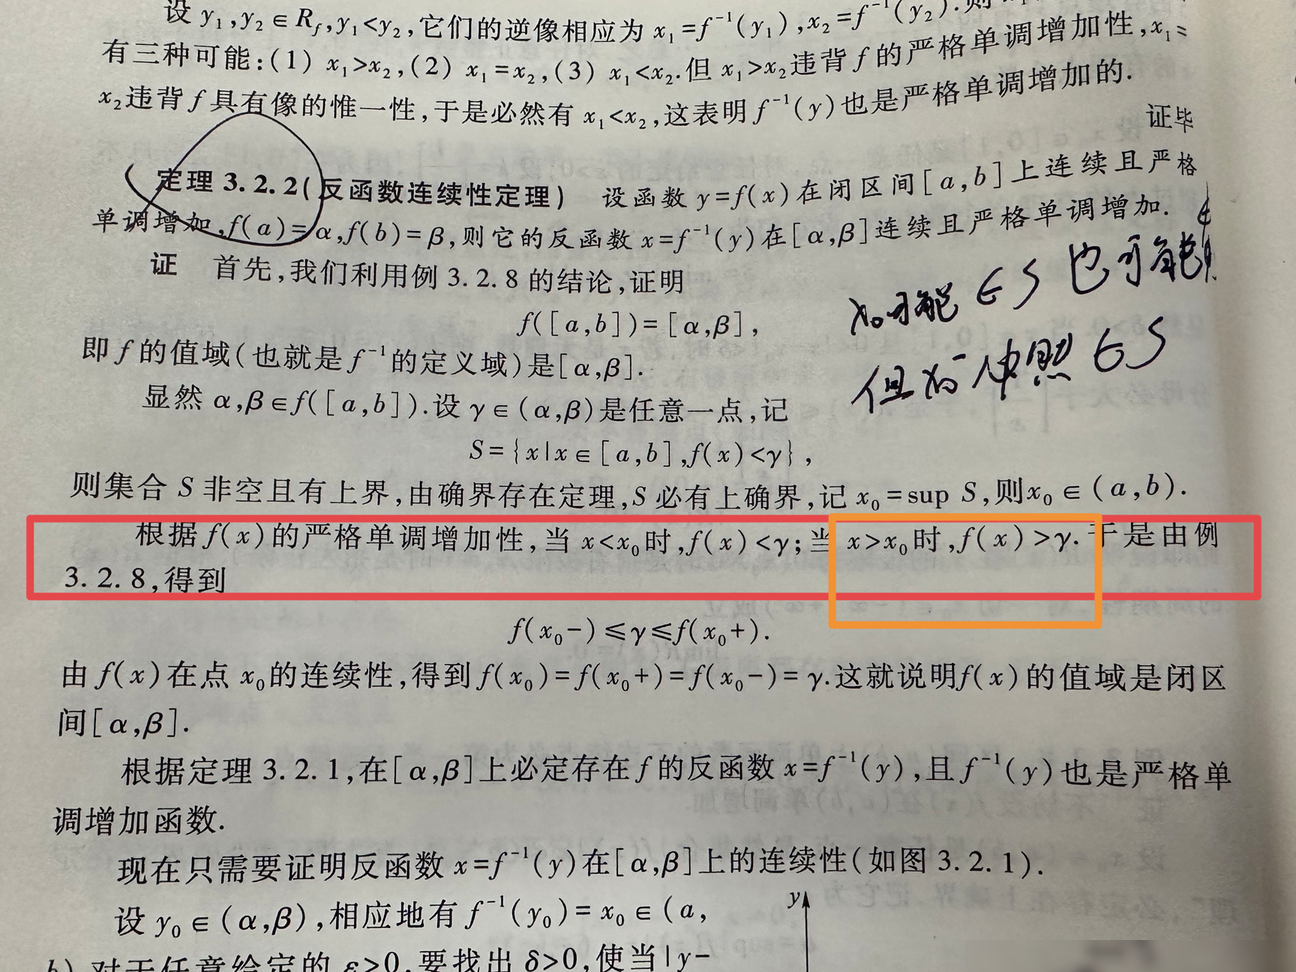 设 y₁,y₂∈R_f,y₁<y₂,它们的逆像相应为 x₁=f⁻¹(y₁),x₂=f⁻¹(y₂).则
有三种可能:(1) x₁>x₂,(2) x₁=x₂,(3) x₁<x₂.但 x₁>x₂违背 f 的严格单调增加性,x₁=
x₂违背 f 具有像的惟一性,于是必然有 x₁<x₂,这表明 f⁻¹(y)也是严格单调增加的.
证毕
定理 3.2.2(反函数连续性定理) 设函数 y=f(x)在闭区间[a,b]上连续且严格
单调增加,f(a)=α,f(b)=β,则它的反函数 x=f⁻¹(y)在[α,β]连续且严格单调增加.
证 首先,我们利用例 3.2.8 的结论,证明
x₀可能∈S 也可能
f([a,b])=[α,β],
即 f 的值域(也就是 f⁻¹的定义域)是[α,β].
但x₀⁻ ∈S
显然 α,β∈f([a,b]).设 γ∈(α,β)是任意一点,记
S={x|x∈[a,b],f(x)<γ},
则集合 S 非空且有上界,由确界存在定理,S 必有上确界,记 x₀=sup S,则x₀∈(a,b).
根据 f(x)的严格单调增加性,当 x<x₀时,f(x)<γ;当 x>x₀时,f(x)>γ.于是由例
3.2.8,得到
f(x₀-)≤γ≤f(x₀+).
由 f(x)在点 x₀的连续性,得到 f(x₀)=f(x₀+)=f(x₀-)=γ.这就说明f(x)的值域是闭区
间[α,β].
根据定理 3.2.1,在[α,β]上必定存在 f 的反函数 x=f⁻¹(y),且 f⁻¹(y)也是严格单
调增加函数.
现在只需要证明反函数 x=f⁻¹(y)在[α,β]上的连续性(如图 3.2.1).
设 y₀∈(α,β),相应地有 f⁻¹(y₀)=x₀∈(a,
y
b).对于任意给定的 ε>0,要找出 δ>0,使当|y-